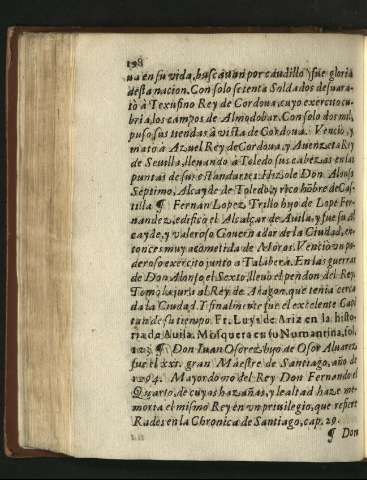 198
ua en su vida, buscauan por caudillo y fue gloria
desta nacion. Con solo setenta Soldados desuara-
tò à Texufino Rey de Cordoua, cuyo exercito cu-
bria los campos de Almodobar. Con solo dos mil
puso sus tiendas à vista de Cordoua. Venciò, y
matò à Azuel Rey de Cordoua, y Auenzeta Rey
de Seuilla, lleuando à Toledo sus cabezas en las
puntas de sus estandartes: Hizole Don Alonso
Septimo, Alcayde de Toledo, y rico hõbre de Cas-
tilla ¶ Fernan Lopez Trillo hijo de Lope Fer-
nandez, edificò el Alcaçar de Auila, y fue su Al
cayde, y valeroso Gouernador de la Ciudad, en-
tonces muy acometida de Moros. Venciò un po-
deroso exercito junto a Talabera. En las guerras
de Don Alonso el Sexto, lleuò el pendon del Rey.
Tomò la jura al Rey de Aragon, que tenia cerca
da la Ciudad. Y finalmente fue el excelente Capi
tan de su tiempo. Fr. Luys de Ariz en la histo-
ria de Auila. Mosquera en su Numantina, fol.
123. ¶ Don Iuan Osorez hijo de Osor Aluarez
fue el xxi. gran Maestre de Santiago, año de
1294. Mayordomo del Rey Don Fernando el
Quarto, de cuyos hazañas, y lealtad haze me-
moria el mismo Rey en un priuilegio, que refiere
Rades en la Chronica de Santiago, cap. 29.
¶ Don